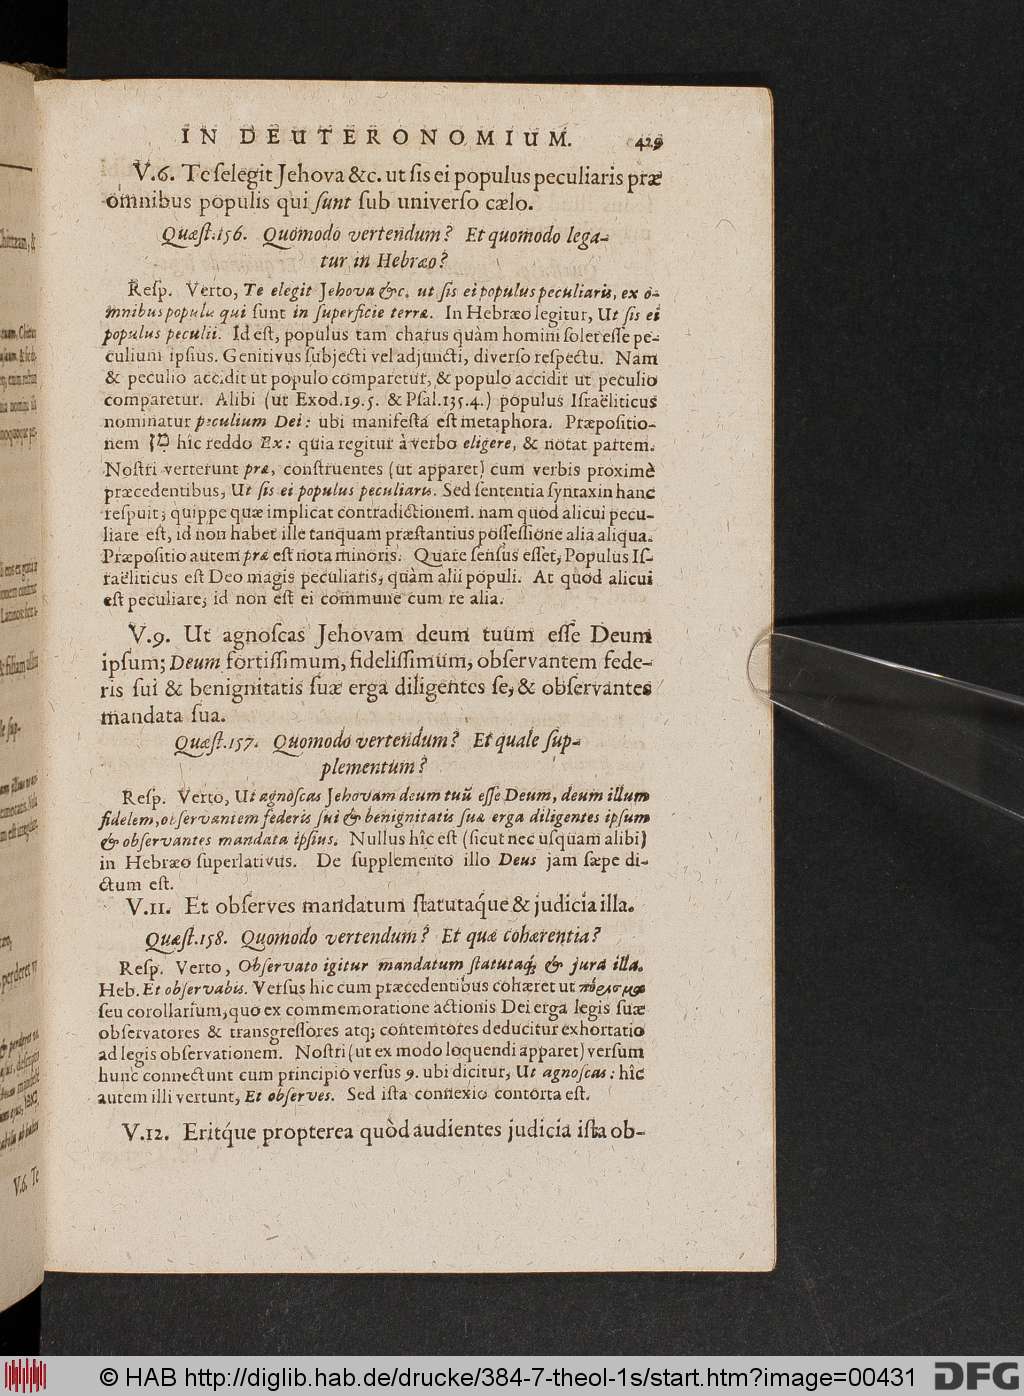 IN DEUTERONOMIUM. 429
V.6. Te selegit Jehova &c. ut sis ei populus peculiaris præ
omnibus populis qui sunt sub universo cælo.
Quæst.156. Quomodo vertendum? Et quomodo lega-
tur in Hebræo?
Resp. Verto, Te elegit Jehova &c. ut sis ei populus peculiaris, ex o-
mnibus populis qui sunt in superficie terræ. In Hebræo legitur, Ut sis ei
populus peculii. Id est, populus tam charus quàm homini solet esse pe-
culium ipsius. Genitivus subjecti vel adjuncti, diverso respectu. Nam
& peculio accidit ut populo comparetur, & populo accidit ut peculio
comparetur. Alibi (ut Exod.19.5. & Psal.135.4.) populus Israëliticus
nominatur peculium Dei: ubi manifesta est metaphora. Præpositio-
nem מִן hîc reddo Ex: quia regitur à verbo eligere, & notat partem.
Nostri verterunt præ, construentes (ut apparet) cum verbis proximè
præcedentibus, Ut sis ei populus peculiaris. Sed sententia syntaxin hanc
respuit; quippe quæ implicat contradictionem. nam quod alicui pecu-
liare est, id non habet ille tanquam præstantius possessione alia aliqua.
Præpositio autem præ est nota minoris. Quare sensus esset, Populus Is-
raëliticus est Deo magis peculiaris, quàm alii populi. At quod alicui
est peculiare, id non est ei commune cum re alia.
V.9. Ut agnoscas Jehovam deum tuum esse Deum
ipsum; Deum fortissimum, fidelissimum, observantem fede-
ris sui & benignitatis suæ erga diligentes se, & observantes
mandata sua.
Quæst.157. Quomodo vertendum? Et quale sup-
plementum?
Resp. Verto, Ut agnoscas Jehovam deum tuū esse Deum, deum illum
fidelem, observantem fœderis sui & benignitatis suæ erga diligentes ipsum
& observantes mandata ipsius. Nullus hîc est (sicut nec usquam alibi)
in Hebræo superlativus. De supplemento illo Deus jam sæpe di-
ctum est.
V.11. Et observes mandatum statutaq́ue & judicia illa.
Quæst.158. Quomodo vertendum? Et quæ cohærentia?
Resp. Verto, Observato igitur mandatum statutaq; & jura illa.
Heb. Et observabis. Versus hic cum præcedentibus cohæret ut πόρισμα
seu corollarium, quo ex commemoratione actionis Dei erga legis suæ
observatores & transgressores atq; contemtores deducitur exhortatio
ad legis observationem. Nostri (ut ex modo loquendi apparet) versum
hunc connectunt cum principio versus 9. ubi dicitur, Ut agnoscas: hîc
autem illi vertunt, Et observes. Sed ista connexio contorta est.
V.12. Eritq́ue propterea quòd audientes judicia ista ob-
V.6. Te
© HAB http://diglib.hab.de/drucke/384-7-theol-1s/start.htm?image=00431
DFG